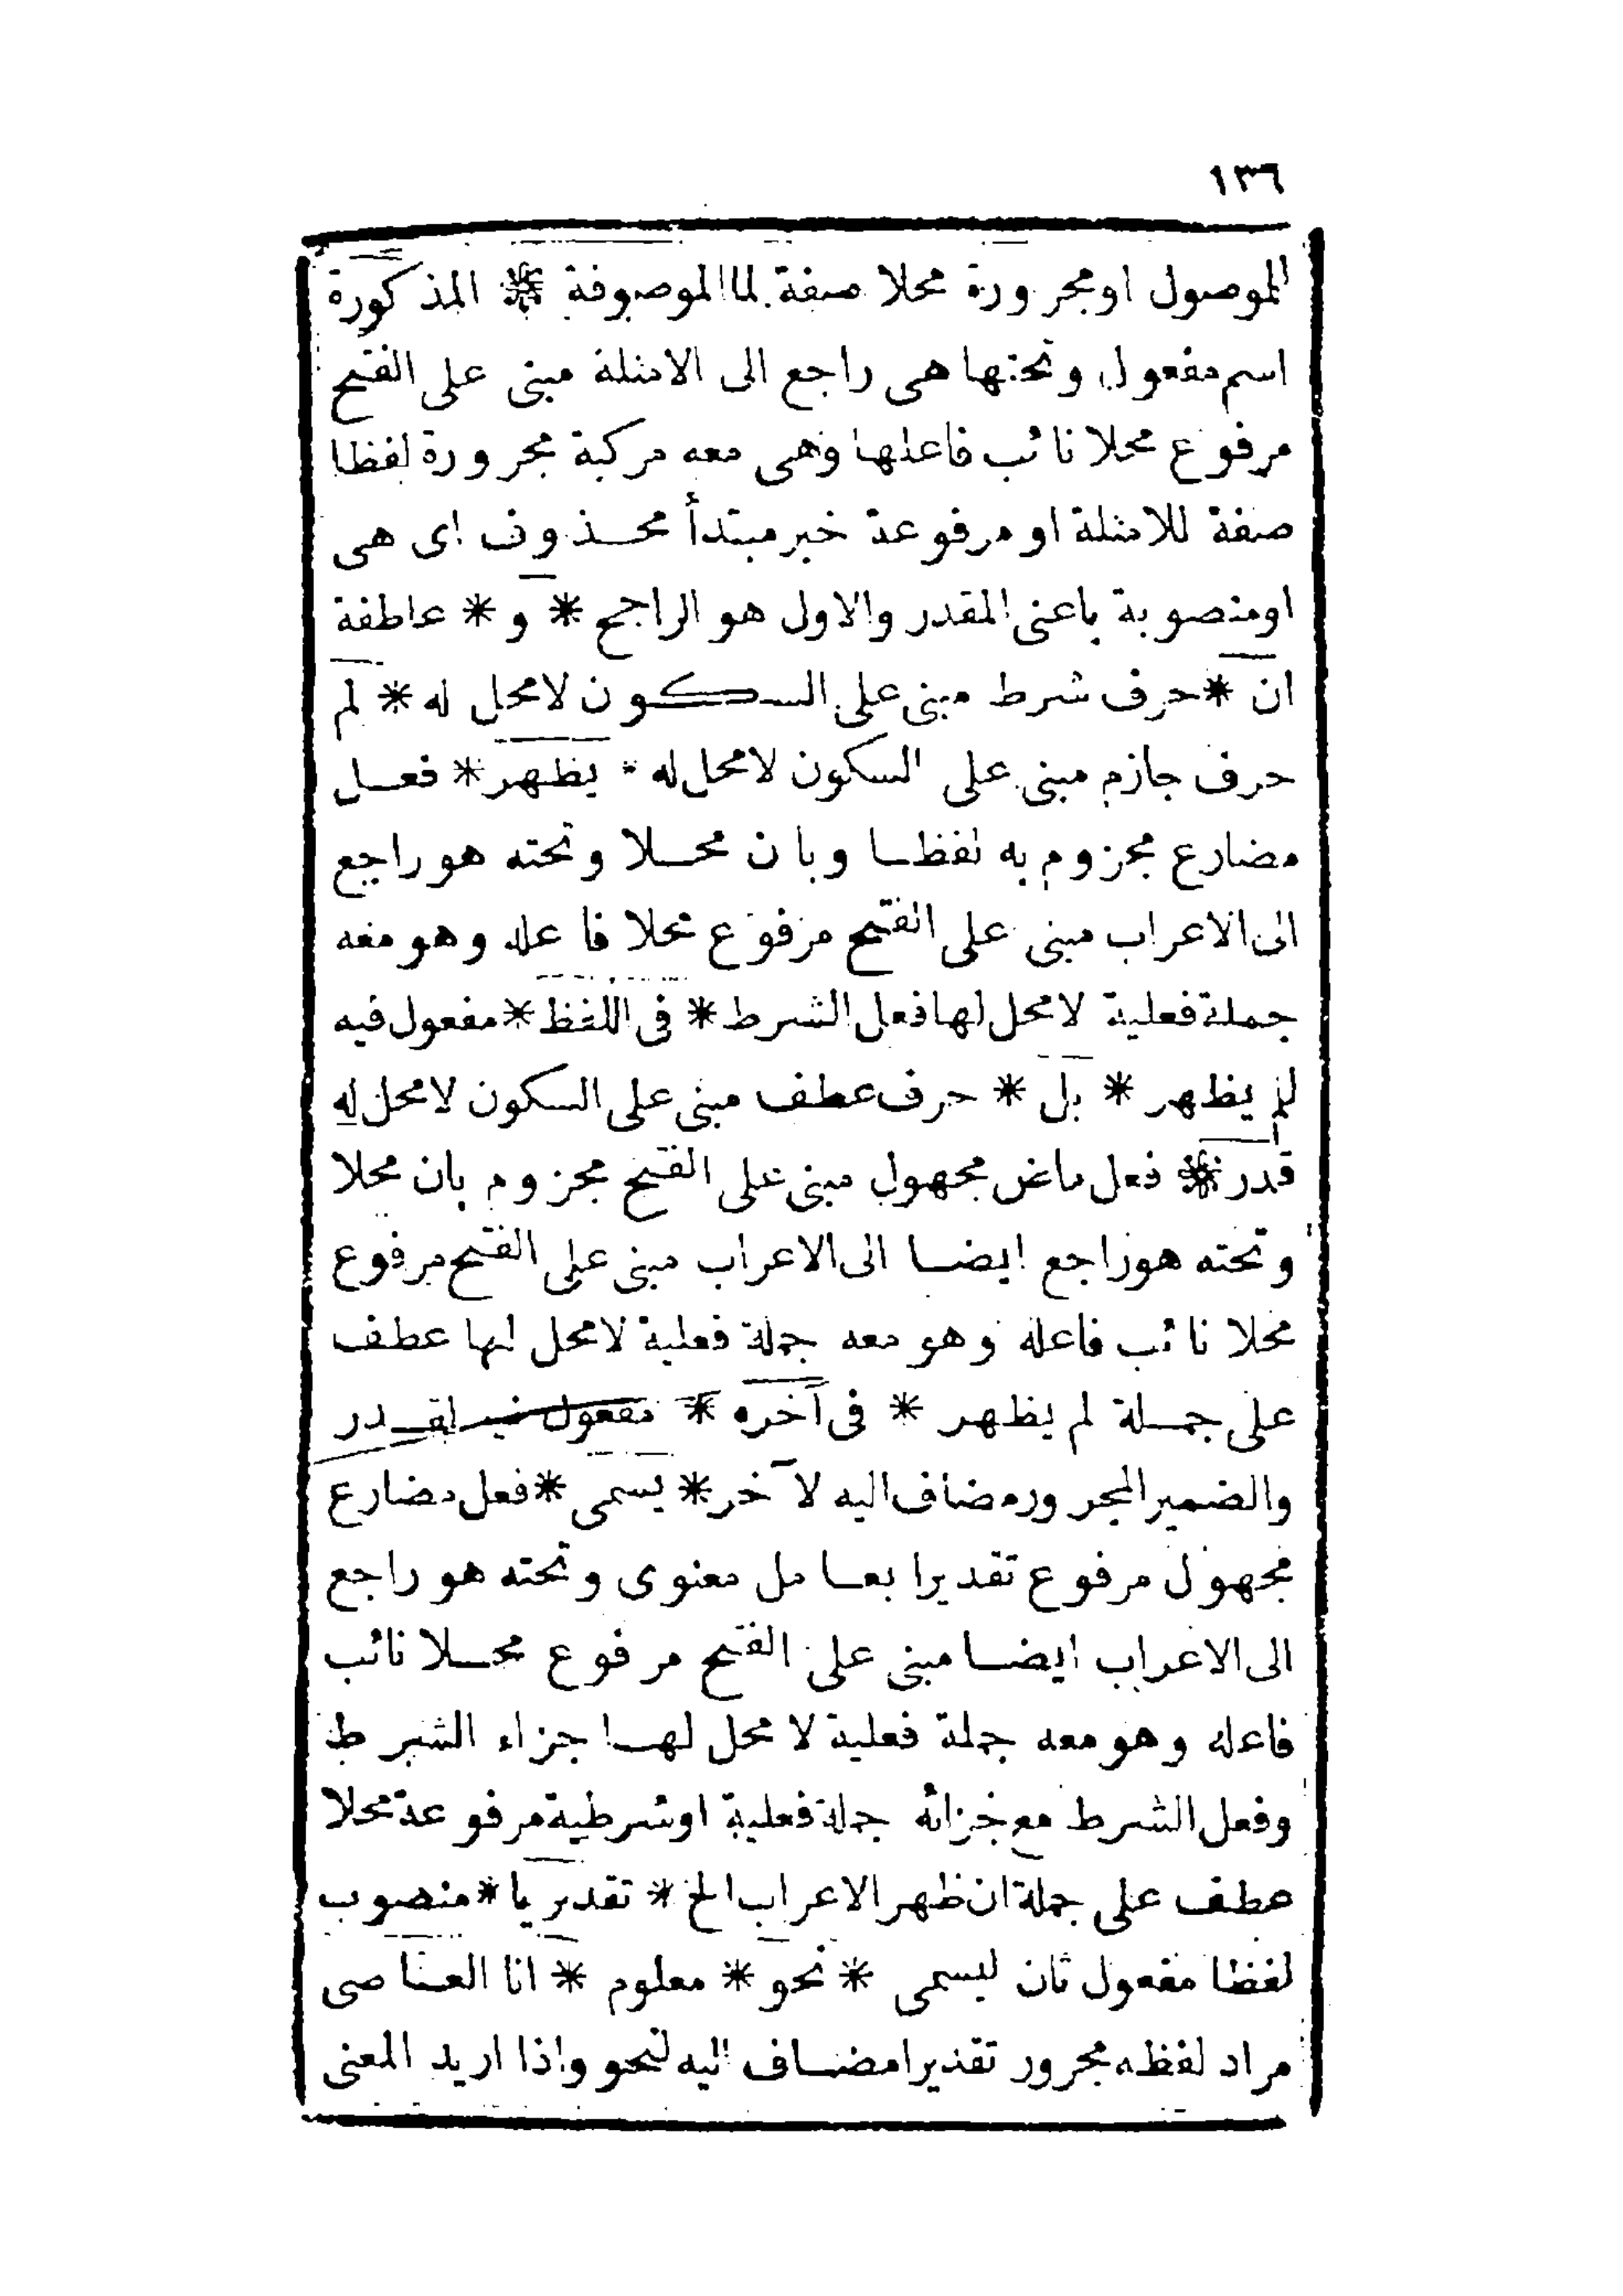 ١٣٦
الموصول او مجرورة محلا صفة لما الموصوفة * المذكورة
اسم مفعول وتحتها هى راجع الى الامثلة مبنى على الفتح
مرفوع محلا نائب فاعلها وهى معه مركبة مجرورة لفظا
صفة للامثلة او مرفوعة خبر مبتدأ محذوف اى هى
او منصوبة باعنى المقدر والاول هو الراجح * و * عاطفة
ان * حرف شرط مبنى على السكون لا محل له * لم
حرف جازم مبنى على السكون لا محل له * يظهر * فعل
مضارع مجزوم به لفظا وبان محلا وتحته هو راجع
الى الاعراب مبنى على الفتح مرفوع محلا فاعله وهو معه
جملة فعلية لا محل لها فعل الشرط * فى اللفظ * مفعول فيه
لم يظهر * بل * حرف عطف مبنى على السكون لا محل له
قدر * فعل ماض مجهول مبنى على الفتح مجزوم بان محلا
وتحته هو راجع ايضا الى الاعراب مبنى على الفتح مرفوع
محلا نائب فاعله وهو معه جملة فعلية لا محل لها عطف
على جملة لم يظهر * فى آخره * مفعول فيه لقدر
والضمير المجرور مضاف اليه لآخر * يسمى * فعل مضارع
مجهول مرفوع تقديرا بعامل معنوى وتحته هو راجع
الى الاعراب ايضا مبنى على الفتح مرفوع محلا نائب
فاعله وهو معه جملة فعلية لا محل لها جزاء الشرط
وفعل الشرط مع جزائه جملة فعلية او شرطية مرفوعة محلا
عطف على جملة ان ظهر الاعراب الخ * تقديريا * منصوب
لفظا مفعول ثان ليسمى * نحو * معلوم * انا العاصى
مراد لفظه مجرور تقديرا مضاف اليه لنحو واذا اريد المعنى